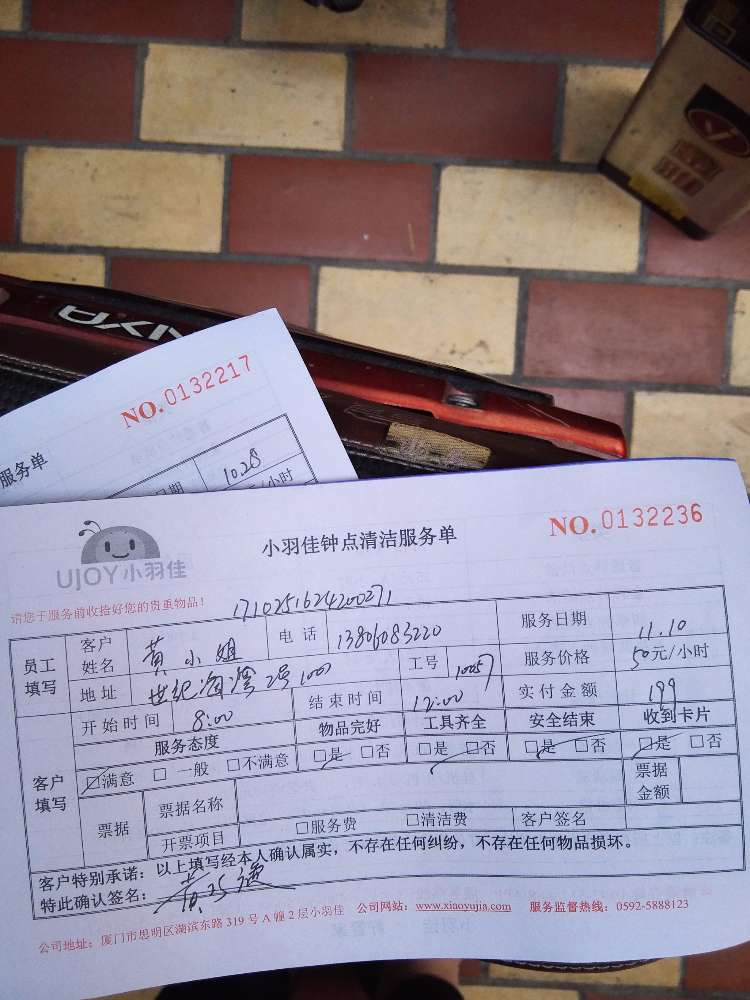 NO.0132217
服务单
10.28
/小时
UJOY小羽佳
小羽佳钟点清洁服务单
NO.0132236
请您于服务前收拾好您的贵重物品!
1710251624200271
员工填写
客户姓名 黄小姐 电话 13806083220 服务日期 11.10
地址 世纪海湾2号1000 工号 10257 服务价格 50元/小时
客户填写
开始时间 8:00 结束时间 12:00 实付金额 199
服务态度 物品完好 工具齐全 安全结束 收到卡片
□满意 □一般 □不满意 □是 □否 □是 □否 □是 □否 □是 □否
票据 票据名称 票据金额
开票项目 □服务费 □清洁费 客户签名
客户特别承诺:以上填写经本人确认属实,不存在任何纠纷,不存在任何物品损坏。
特此确认签名:
公司地址:厦门市思明区湖滨东路 319 号 A 幢 2 层小羽佳 公司网站:www.xiaoyujia.com 服务监督热线:0592-5888123